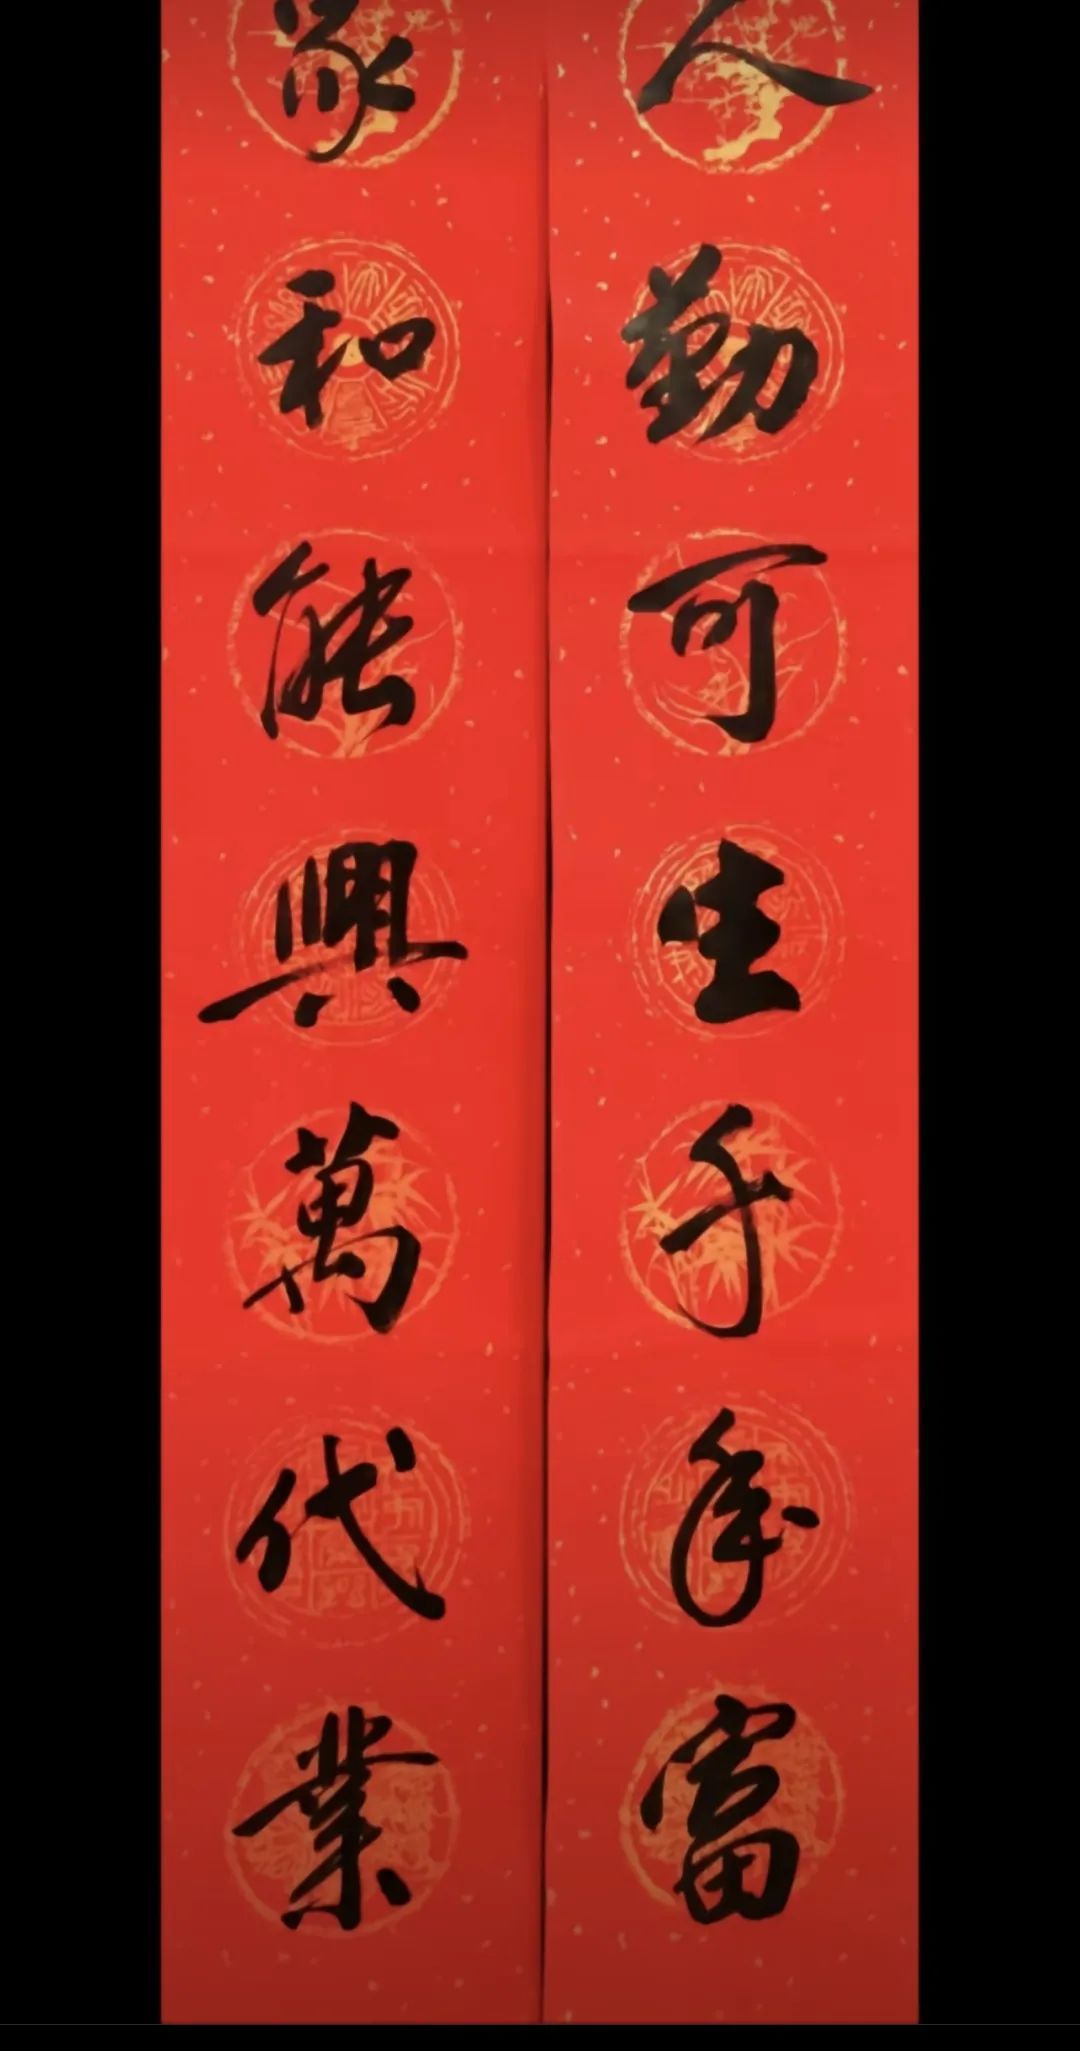 人勤可生千年富
家和能興萬代業